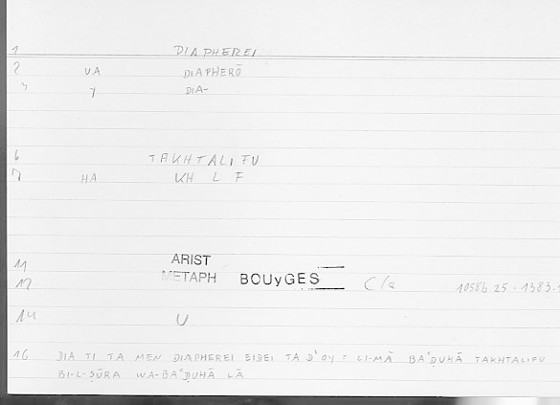 1 DIAPHEREI
2 VA DIAPHERŌ
3 y DIA-
6 TAKHTALIFU
7 HA KH L F
11 ARIST
12 METAPH BOUyGES C/a 1058b 25 - 1383.1
14 U
16 DIA TI TA MEN DIAPHEREI EIDEI TA D'OY = LI-MĀ BAʿḌUHĀ TAKHTALIFU
BI-L-ṢŪRA WA-BAʿḌUHĀ LĀ